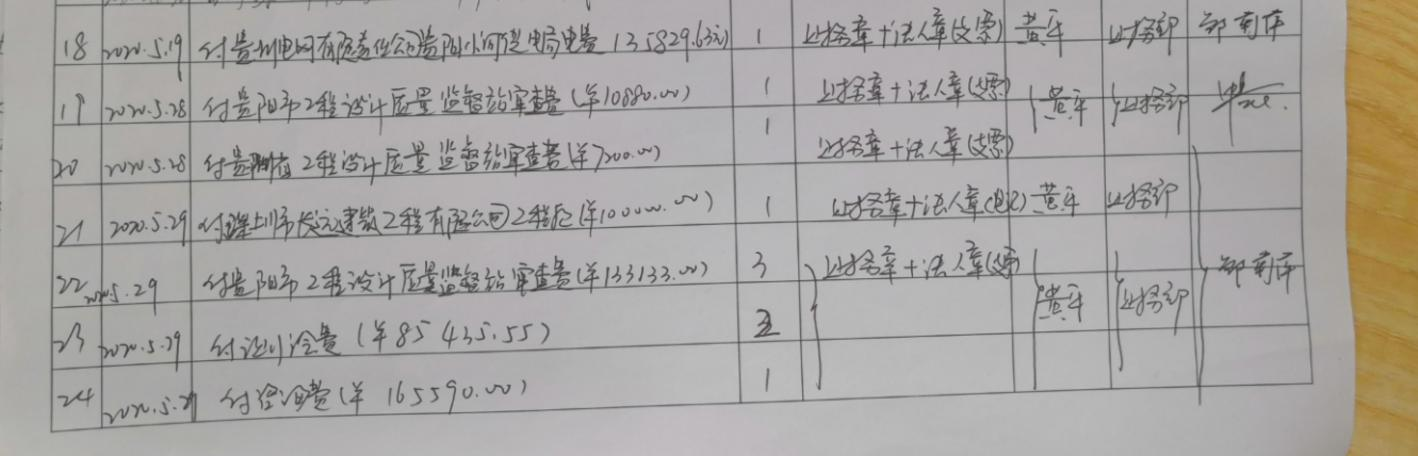 18 2020.5.19 付贵州电网有限责任公司贵阳小河供电局电费 135829.63元) 1 财务章+法人章(支票) 黄平 财务部
19 2020.5.28 付贵阳市工程设计质量监督站审查费(¥10880.00) 1 财务章+法人章(支票) 黄平 财务部
20 2020.5.28 付贵阳市工程设计质量监督站审查费(¥7200.00) 1 财务章+法人章(支票)
21 2020.5.29 付 建筑工程有限公司工程款(¥100000.00) 1 财务章+法人章 黄平 财务部
22 2020.5.29 付贵阳市工程设计质量监督站审查费(¥133133.00) 3 财务章+法人章(支票) 黄平 财务部
23 2020.5.29 付 费(¥85435.55)
24 2020.5.29 付咨询费(¥165590.00) 1